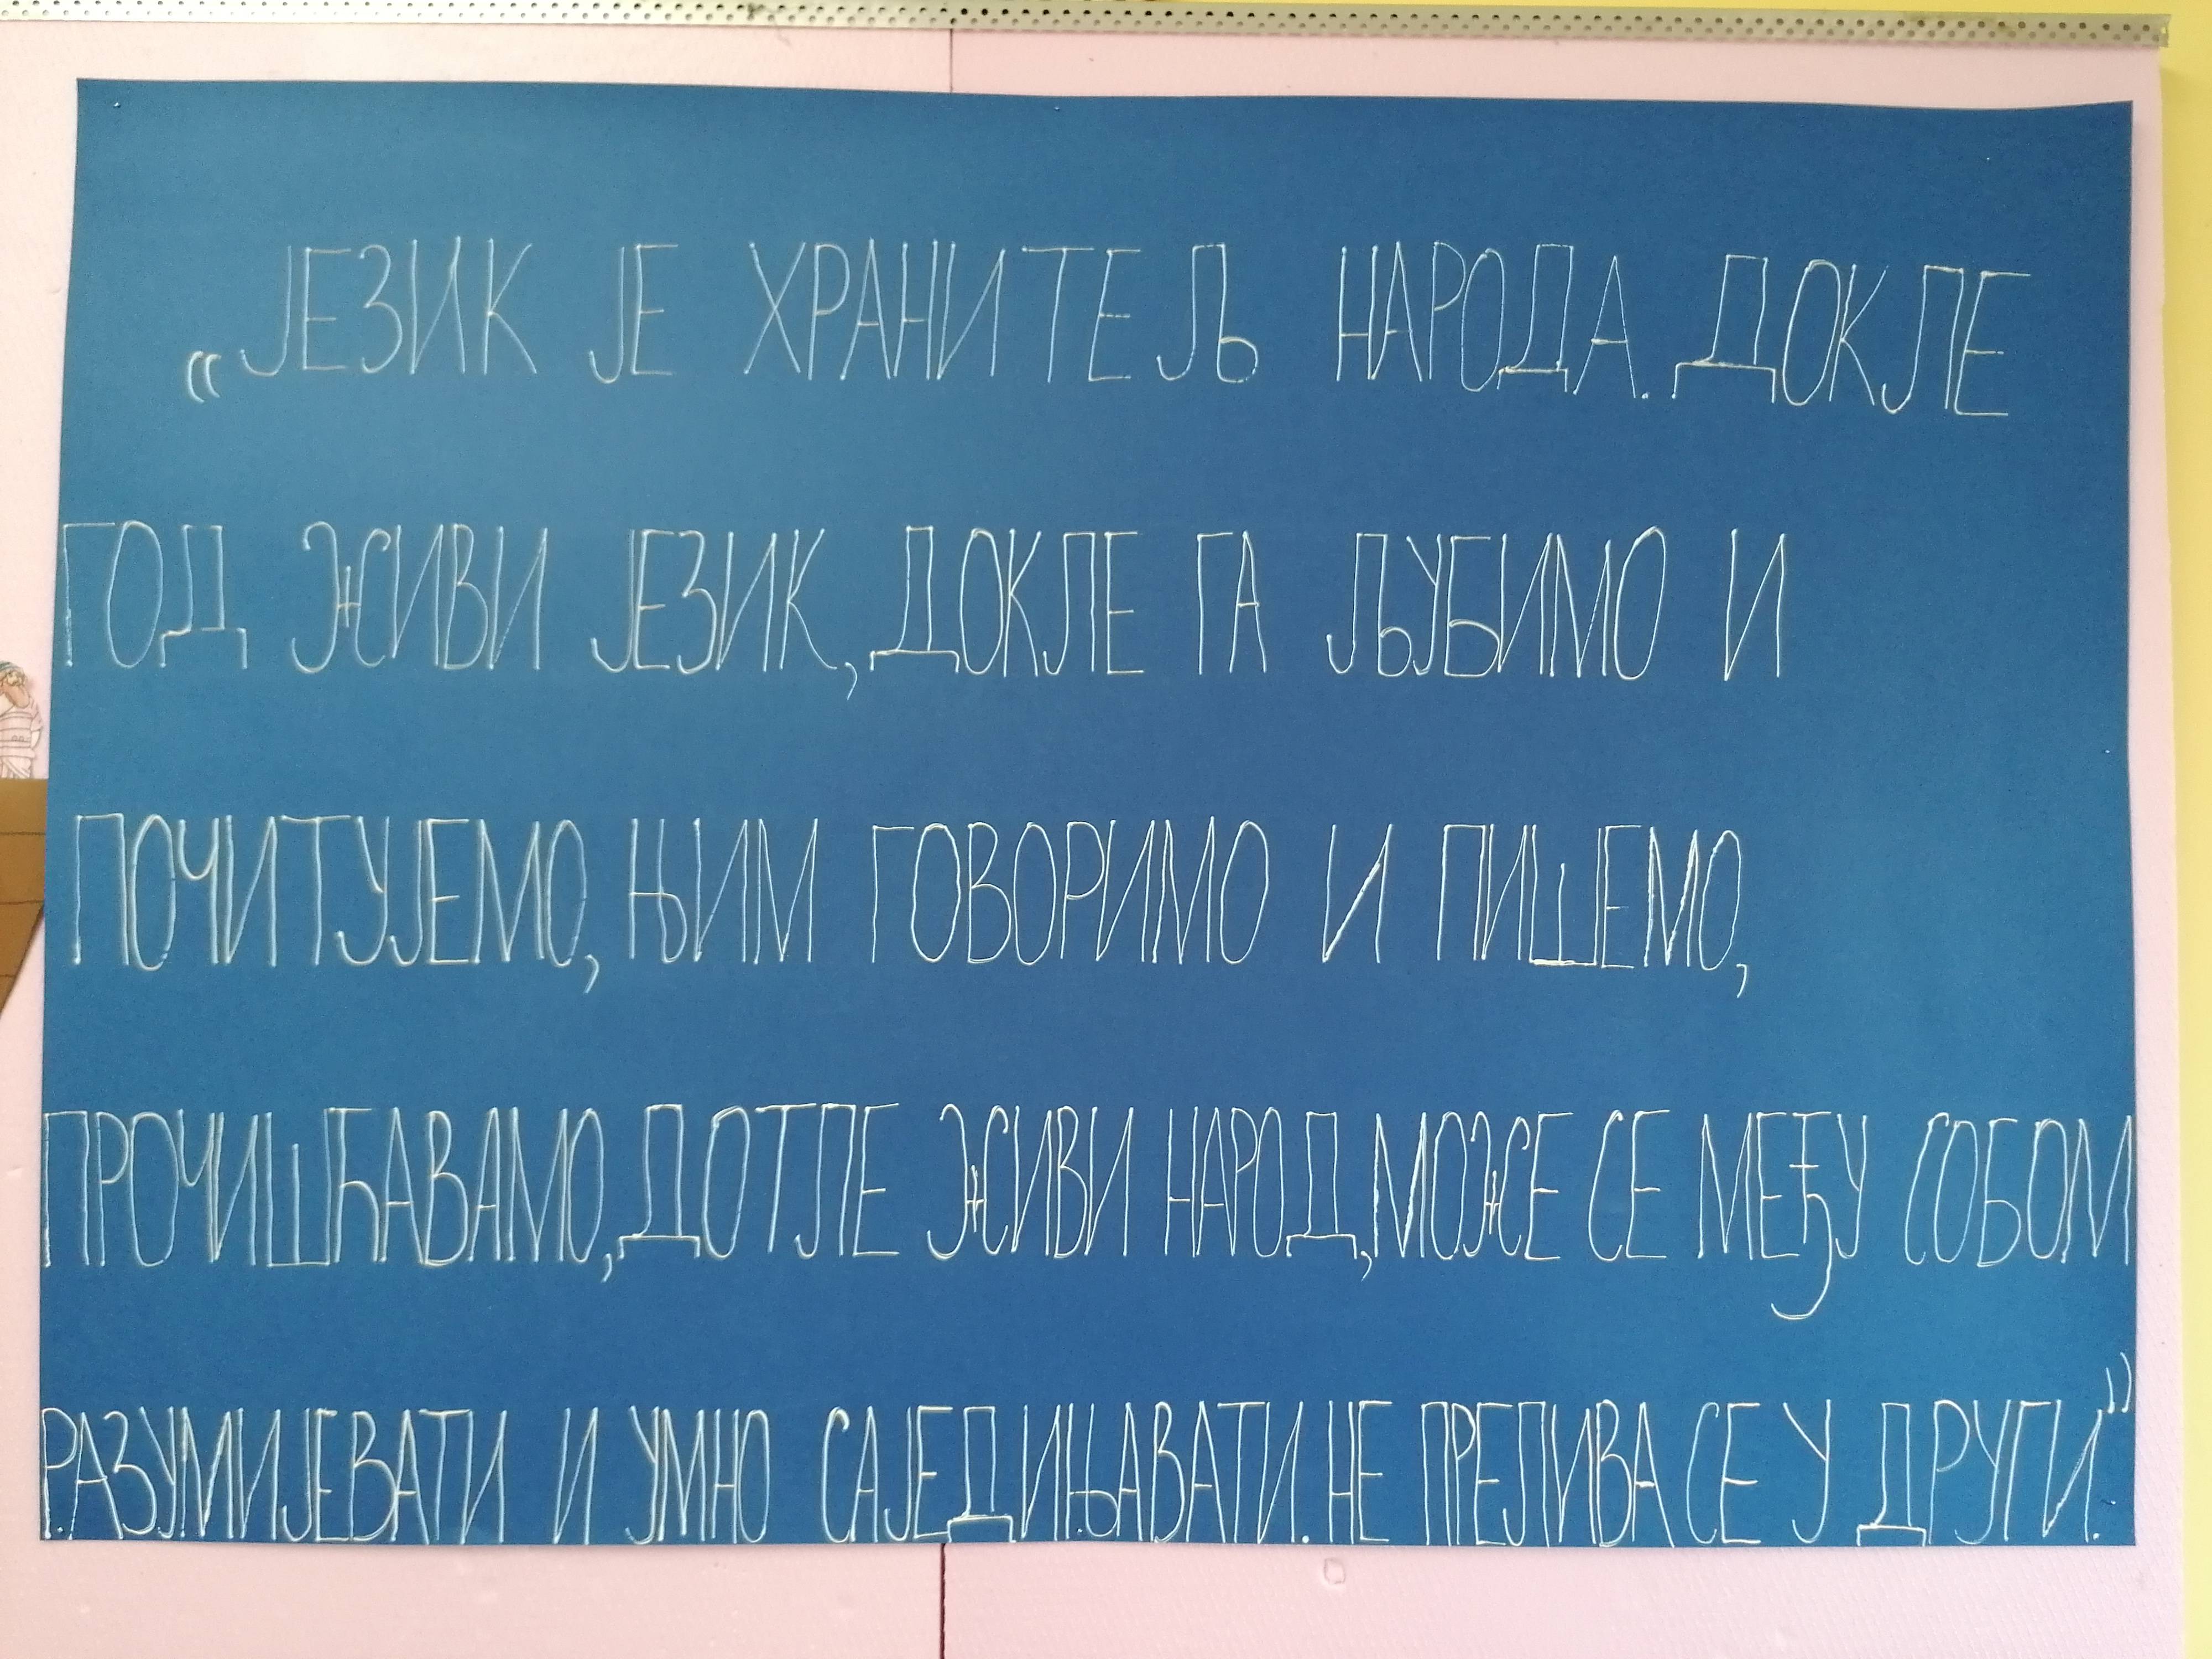 „ЈЕЗИК ЈЕ ХРАНИТЕЉ НАРОДА. ДОКЛЕ
ГОД ЖИВИ ЈЕЗИК, ДОКЛЕ ГА ЉУБИМО И
ПОЧИТУЈЕМО, ЊИМ ГОВОРИМО И ПИШЕМО,
ПРОЧИШЋАВАМО, ДОТЛЕ ЖИВИ НАРОД, МОЖЕ СЕ МЕЂУ СОБОМ
РАЗУМИЈЕВАТИ И УМНО САЈЕДИЊАВАТИ. НЕ ПРЕЛИВА СЕ У ДРУГИ.”